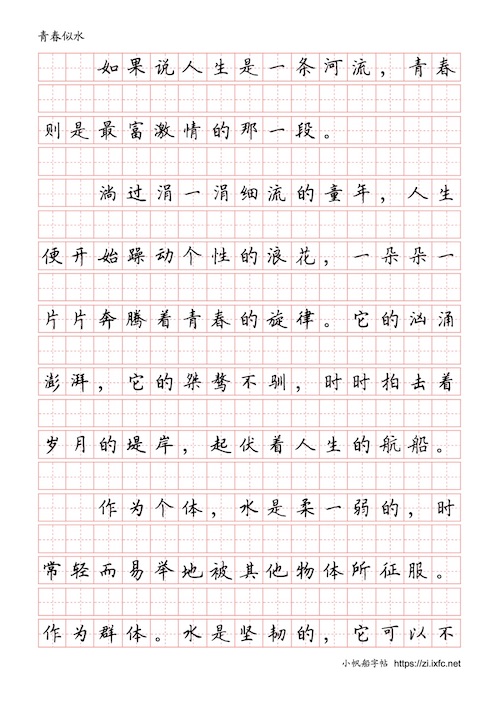 青春似水
如果说人生是一条河流，青春
则是最富激情的那一段。
淌过涓一涓细流的童年，人生
便开始躁动个性的浪花，一朵朵一
片片奔腾着青春的旋律。它的汹涌
澎湃，它的桀骜不驯，时时拍击着
岁月的堤岸，起伏着人生的航船。
作为个体，水是柔一弱的，时
常轻而易举地被其他物体所征服。
作为群体。水是坚韧的，它可以不
小帆船字帖 https://zi.ixfc.net